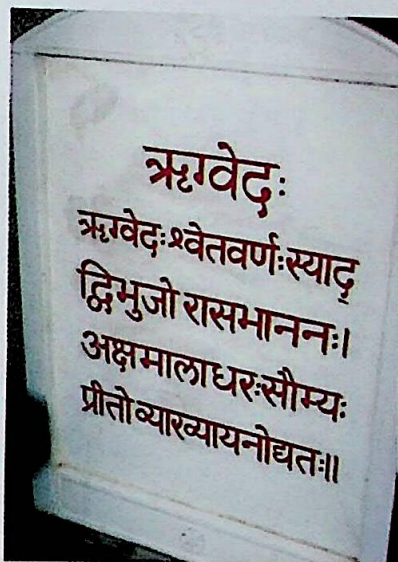 ऋग्वेदः
ऋग्वेदःश्वेतवर्णःस्याद्
द्विभुजो रासभाननः।
अक्षमालाधरःसौम्यः
प्रीतोव्याख्यायनोद्यतः॥